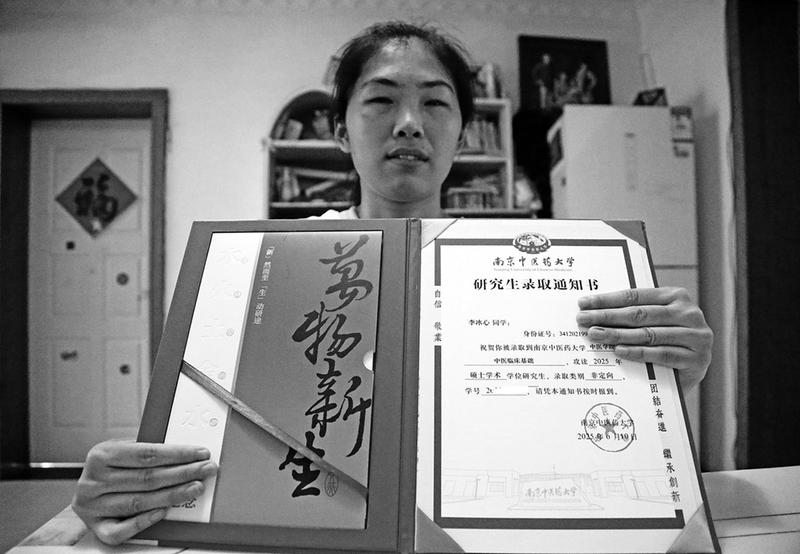 福
「新」然而至 「生」动研途
萬物新生
南京中医药大学
Nanjing University of Chinese Medicine
研究生录取通知书
李冰心 同学:
身份证号: 341202199
祝贺你被录取到南京中医药大学 中医学院
中医临床基础 , 攻读 2025 年
硕士学术 学位研究生, 录取类别 非定向 。
学号 20 , 请凭本通知书按时报到。
南京中医药大学
2025年6月19日
自信 敬業
团结奋進 繼承創新
南京中医药大学